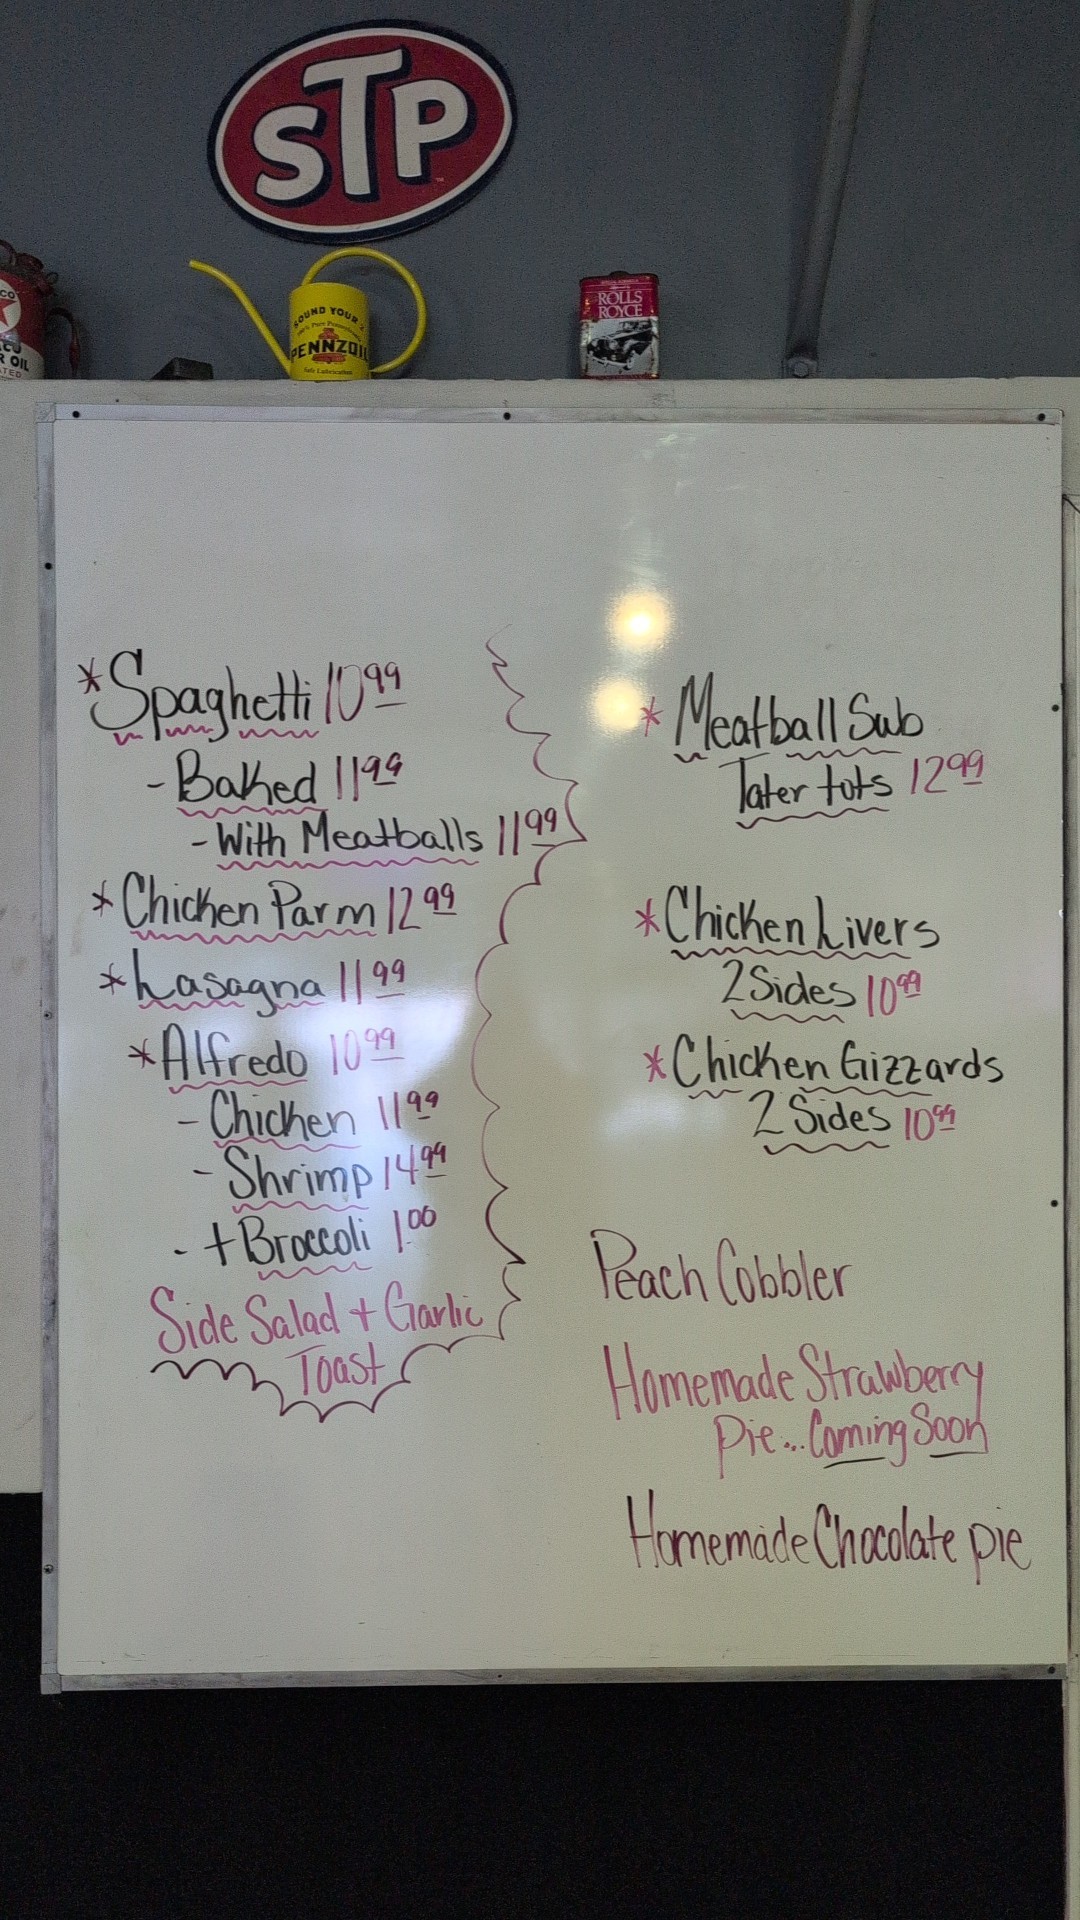 STP
SOUND YOUR Z
100% Pure Pennsylvania
PENNZOIL
Safe Lubrication
ROLLS
ROYCE
CO
R OIL
*Spaghetti 10 99
- Baked 11 99
- With Meatballs 11 99
* Chicken Parm 12 99
* Lasagna 11 99
* Alfredo 10 99
- Chicken 11 99
- Shrimp 14 99
- + Broccoli 1.00
Side Salad + Garlic
Toast
* Meatball Sub
Tater tots 12 99
* Chicken Livers
2 Sides 10 99
* Chicken Gizzards
2 Sides 10 99
Peach Cobbler
Homemade Strawberry
Pie... Coming Soon
Homemade Chocolate pie